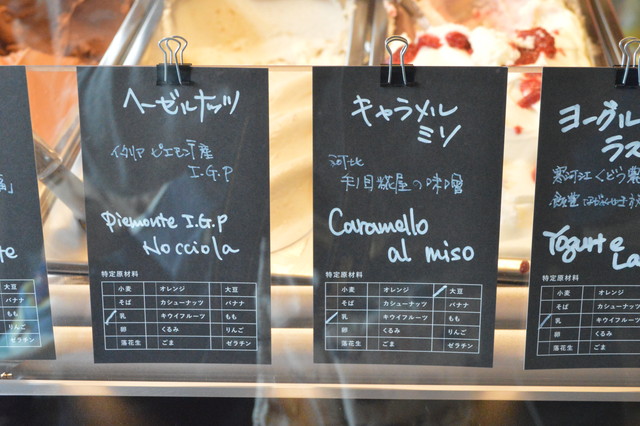 ヘーゼルナッツ
イタリア ピエモンテ産
I.G.P
Piemonte I.G.P
Nocciola
特定原材料
小麦 オレンジ 大豆
そば カシューナッツ バナナ
乳 キウイフルーツ もも
卵 くるみ りんご
落花生 ごま ゼラチン
キャラメル
ミソ
河北
の味噌
Caramello
al miso
特定原材料
小麦 オレンジ 大豆
そば カシューナッツ バナナ
乳 キウイフルーツ もも
卵 くるみ りんご
落花生 ごま ゼラチン
ヨーグル
ラス
寒河江
Yogurt e
La
特定原材料
小麦 オレンジ
そば カシューナッツ
乳 キウイフルーツ
卵 くるみ
落花生 ごま
大豆
バナナ
もも
りんご
ゼラチン